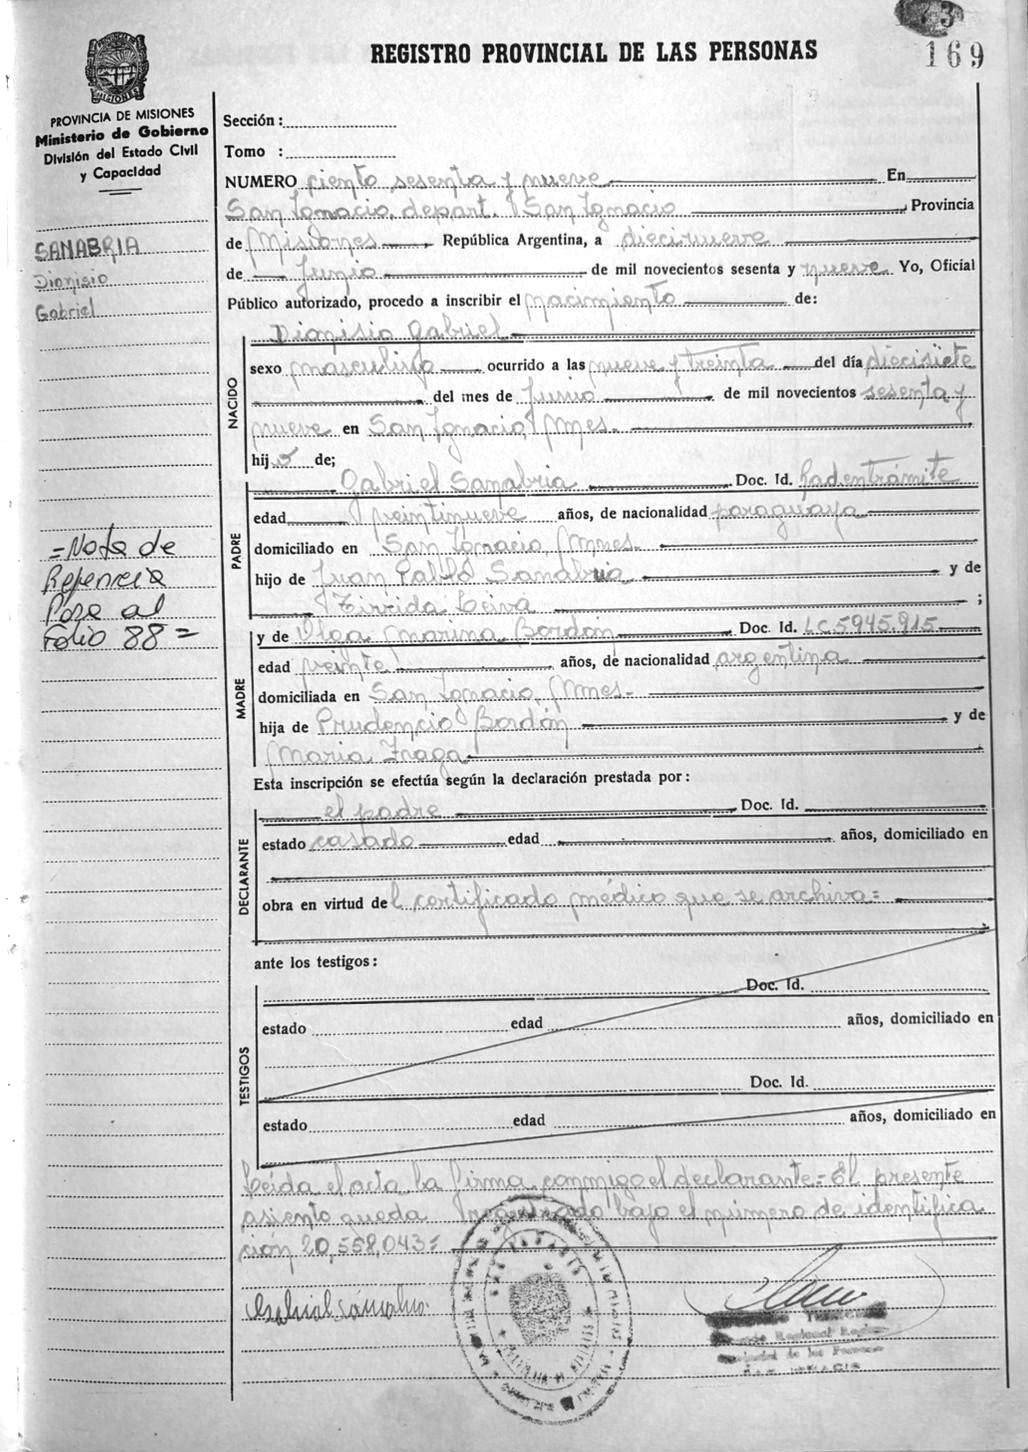 REGISTRO PROVINCIAL DE LAS PERSONAS
169
PROVINCIA DE MISIONES
Ministerio de Gobierno
División del Estado Civil
y Capacidad
SANABRIA
Dionisio
Gabriel
=Nota de
Referencia
Pase al
Folio 88=
Sección:
Tomo :
NUMERO ciento sesenta y nueve En
San Ignacio, depart. San Ignacio Provincia
de Misiones República Argentina, a diecinueve
de Junio de mil novecientos sesenta y nueve Yo, Oficial
Público autorizado, procedo a inscribir el nacimiento de:
Dionisio Gabriel
NACIDO
sexo masculino ocurrido a las nueve y treinta del día diecisiete
del mes de Junio de mil novecientos sesenta y
nueve en San Ignacio, Mnes.
hijo de;
PADRE
Gabriel Sanabria Doc. Id. Rad en trámite
edad veintinueve años, de nacionalidad paraguaya
domiciliado en San Ignacio, Mnes.
hijo de Juan Pablo Sanabria y de
Leiva ;
MADRE
y de Olga Marina Bordón Doc. Id. LC.5945.915
edad veinte años, de nacionalidad argentina
domiciliada en San Ignacio, Mnes.
hija de Prudencio Bordón y de
Maria Fraga
Esta inscripción se efectúa según la declaración prestada por:
DECLARANTE
el padre Doc. Id.
estado casado edad años, domiciliado en
obra en virtud del certificado médico que se archiva=
ante los testigos:
TESTIGOS
Doc. Id.
estado edad años, domiciliado en
Doc. Id.
estado edad años, domiciliado en
Leída el acta la firma conmigo el declarante=El presente
asiento queda registrado bajo el número de identifica
ción 20,558,043=